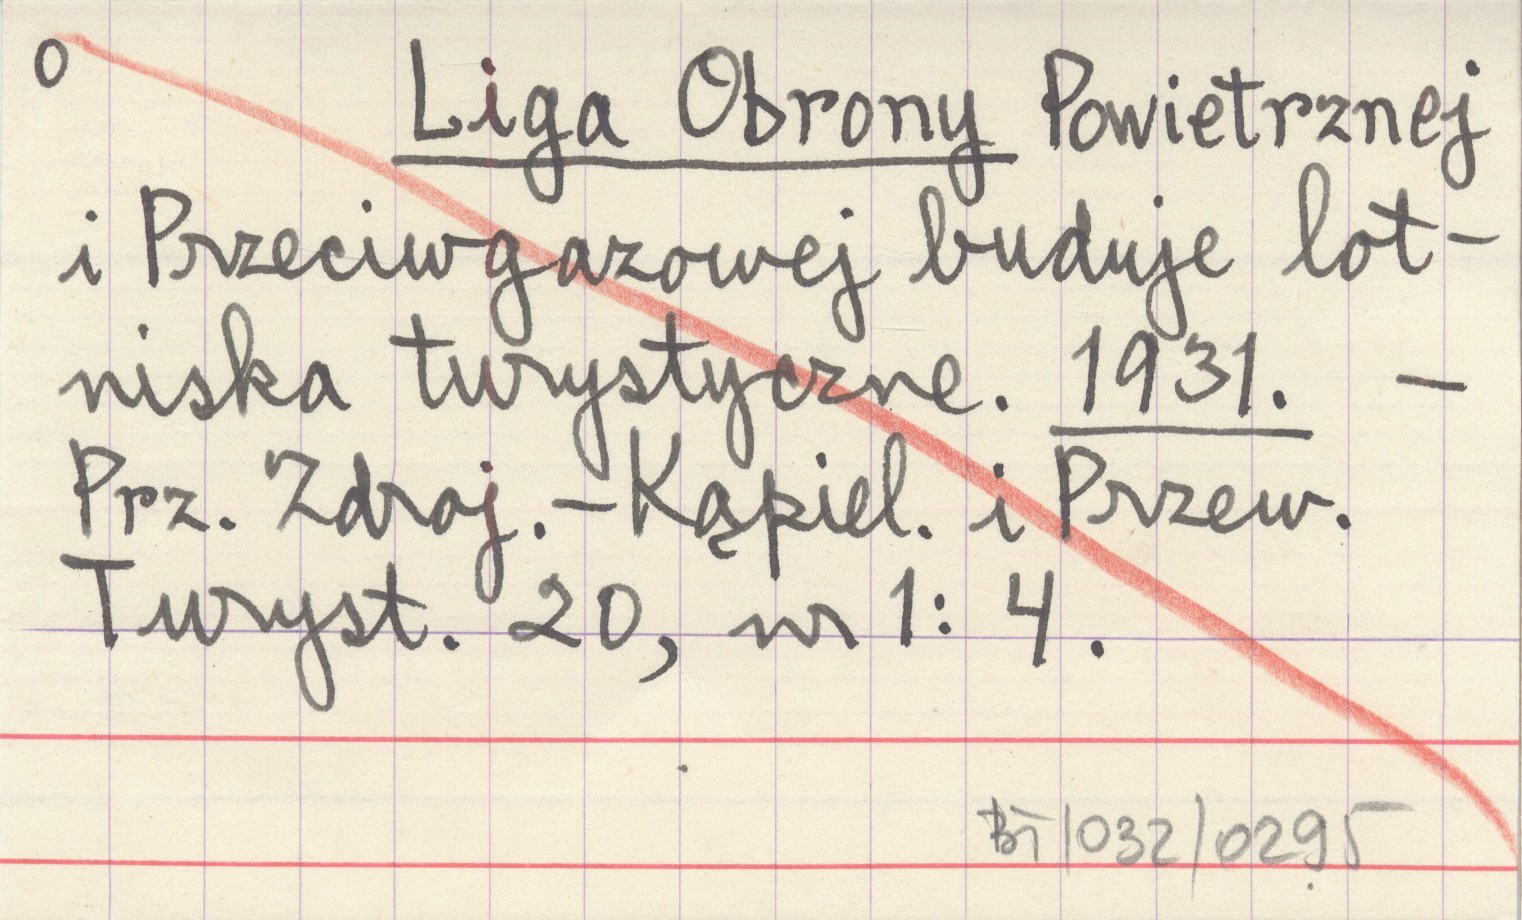 o Liga Obrony Powietrznej
i Przeciwgazowej buduje lot-
niska turystyczne. 1931. —
Prz. Zdroj.-Kąpiel. i Przew.
Turyst. 20, nr 1: 4.
BT/032/0295